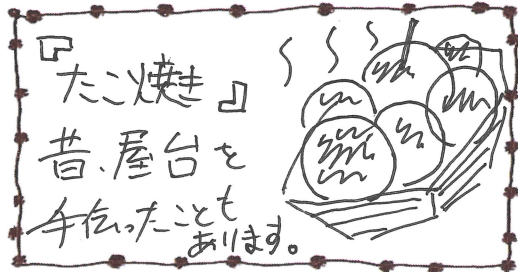 『たこ焼き』
昔、屋台を
手伝ったことも
あります。